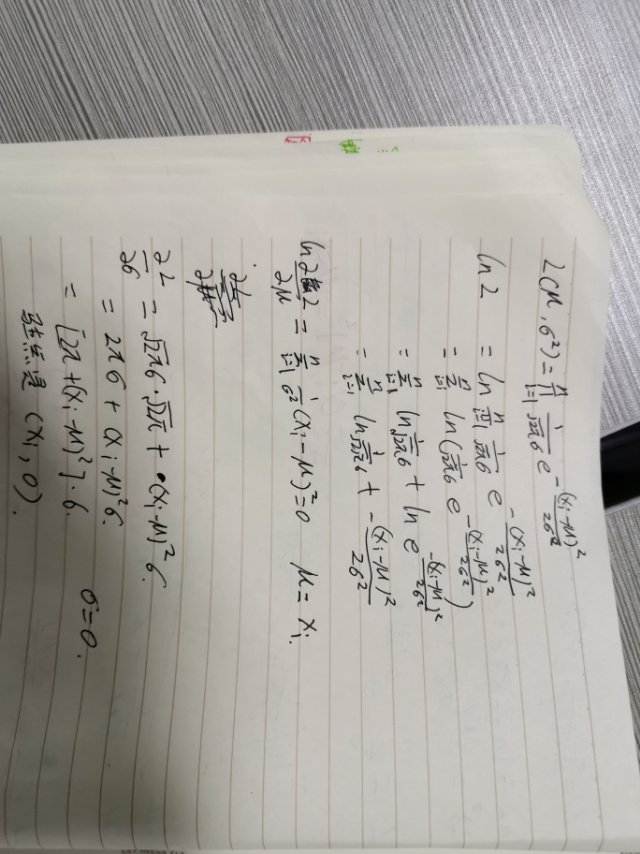 L(μ,σ²) = ∏ᵢ₌₁ⁿ 1/√2πσ e^(-(xᵢ-μ)²/2σ²)
ln L = ln ∏ᵢ₌₁ⁿ 1/√2πσ e^(-(xᵢ-μ)²/2σ²)
= Σᵢ₌₁ⁿ ln(1/√2πσ e^(-(xᵢ-μ)²/2σ²))
= Σᵢ₌₁ⁿ ln 1/√2πσ + ln e^(-(xᵢ-μ)²/2σ²)
= Σᵢ₌₁ⁿ ln 1/√2πσ + -(xᵢ-μ)²/2σ²
∂L/∂μ = Σᵢ₌₁ⁿ 1/σ² (xᵢ-μ)² = 0 μ = xᵢ.
∂L/∂σ = √2πσ·√2π + (xᵢ-μ)²σ
= 2πσ + (xᵢ-μ)²σ.
= [2π + (xᵢ-μ)²]·σ. σ=0.
驻点是 (xᵢ, 0).